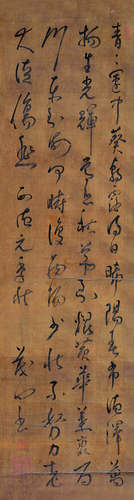 青〻園中葵朝露待日晞陽春布德澤萬
物生光輝常恐秋節至焜黃華葉衰百
川東到海何時復西歸少壯不努力老
大徒傷悲 正德元年秋